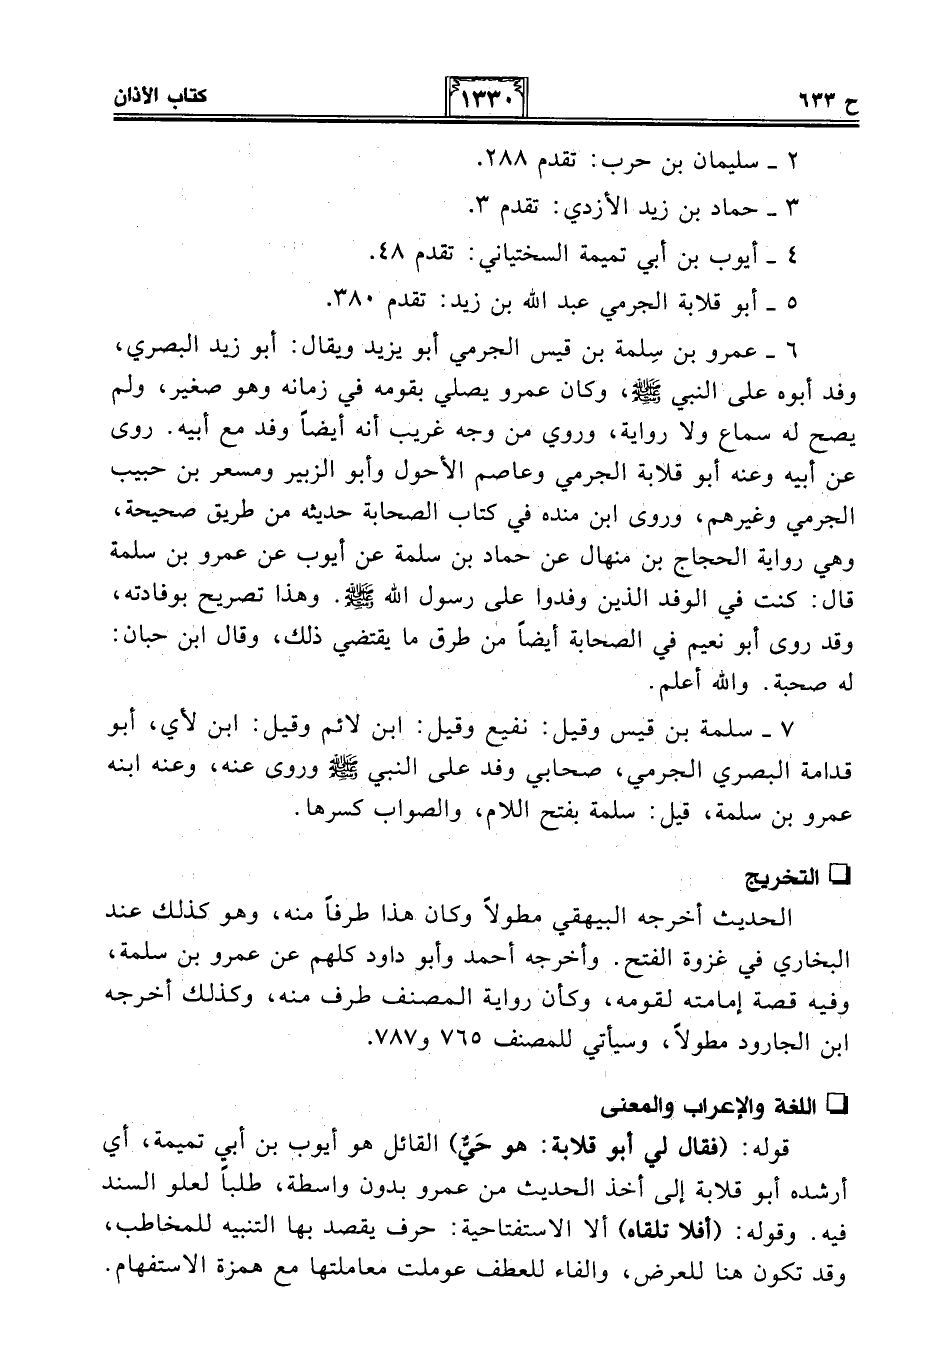 ح ٦٣٣ ١٣٣٠ كتاب الأذان
٢ ـ سليمان بن حرب: تقدم ٢٨٨.
٣ ـ حماد بن زيد الأزدي: تقدم ٣.
٤ ـ أيوب بن أبي تميمة السختياني: تقدم ٤٨.
٥ ـ أبو قلابة الجرمي عبد الله بن زيد: تقدم ٣٨٠.
٦ ـ عمرو بن سلِمة بن قيس الجرمي أبو يزيد ويقال: أبو زيد البصري،
وفد أبوه على النبي ﷺ، وكان عمرو يصلي بقومه في زمانه وهو صغير، ولم
يصح له سماع ولا رواية، وروي من وجه غريب أنه أيضاً وفد مع أبيه. روى
عن أبيه وعنه أبو قلابة الجرمي وعاصم الأحول وأبو الزبير ومسعر بن حبيب
الجرمي وغيرهم، وروى ابن منده في كتاب الصحابة حديثه من طريق صحيحة،
وهي رواية الحجاج بن منهال عن حماد بن سلمة عن أيوب عن عمرو بن سلمة
قال: كنت في الوفد الذين وفدوا على رسول الله ﷺ. وهذا تصريح بوفادته،
وقد روى أبو نعيم في الصحابة أيضاً من طرق ما يقتضي ذلك، وقال ابن حبان:
له صحبة. والله أعلم.
٧ ـ سلمة بن قيس وقيل: نفيع وقيل: ابن لائم وقيل: ابن لأي، أبو
قدامة البصري الجرمي، صحابي وفد على النبي ﷺ وروى عنه، وعنه ابنه
عمرو بن سلمة، قيل: سلمة بفتح اللام، والصواب كسرها.
❑ التخريج
الحديث أخرجه البيهقي مطولاً وكان هذا طرفاً منه، وهو كذلك عند
البخاري في غزوة الفتح. وأخرجه أحمد وأبو داود كلهم عن عمرو بن سلمة،
وفيه قصة إمامته لقومه، وكأن رواية المصنف طرف منه، وكذلك أخرجه
ابن الجارود مطولاً، وسيأتي للمصنف ٧٦٥ و٧٨٧.
❑ اللغة والإعراب والمعنى
قوله: (فقال لي أبو قلابة: هو حَيٌّ) القائل هو أيوب بن أبي تميمة، أي
أرشده أبو قلابة إلى أخذ الحديث من عمرو بدون واسطة، طلباً لعلو السند
فيه. وقوله: (أفلا تلقاه) ألا الاستفتاحية: حرف يقصد بها التنبيه للمخاطب،
وقد تكون هنا للعرض، والفاء للعطف عوملت معاملتها مع همزة الاستفهام.